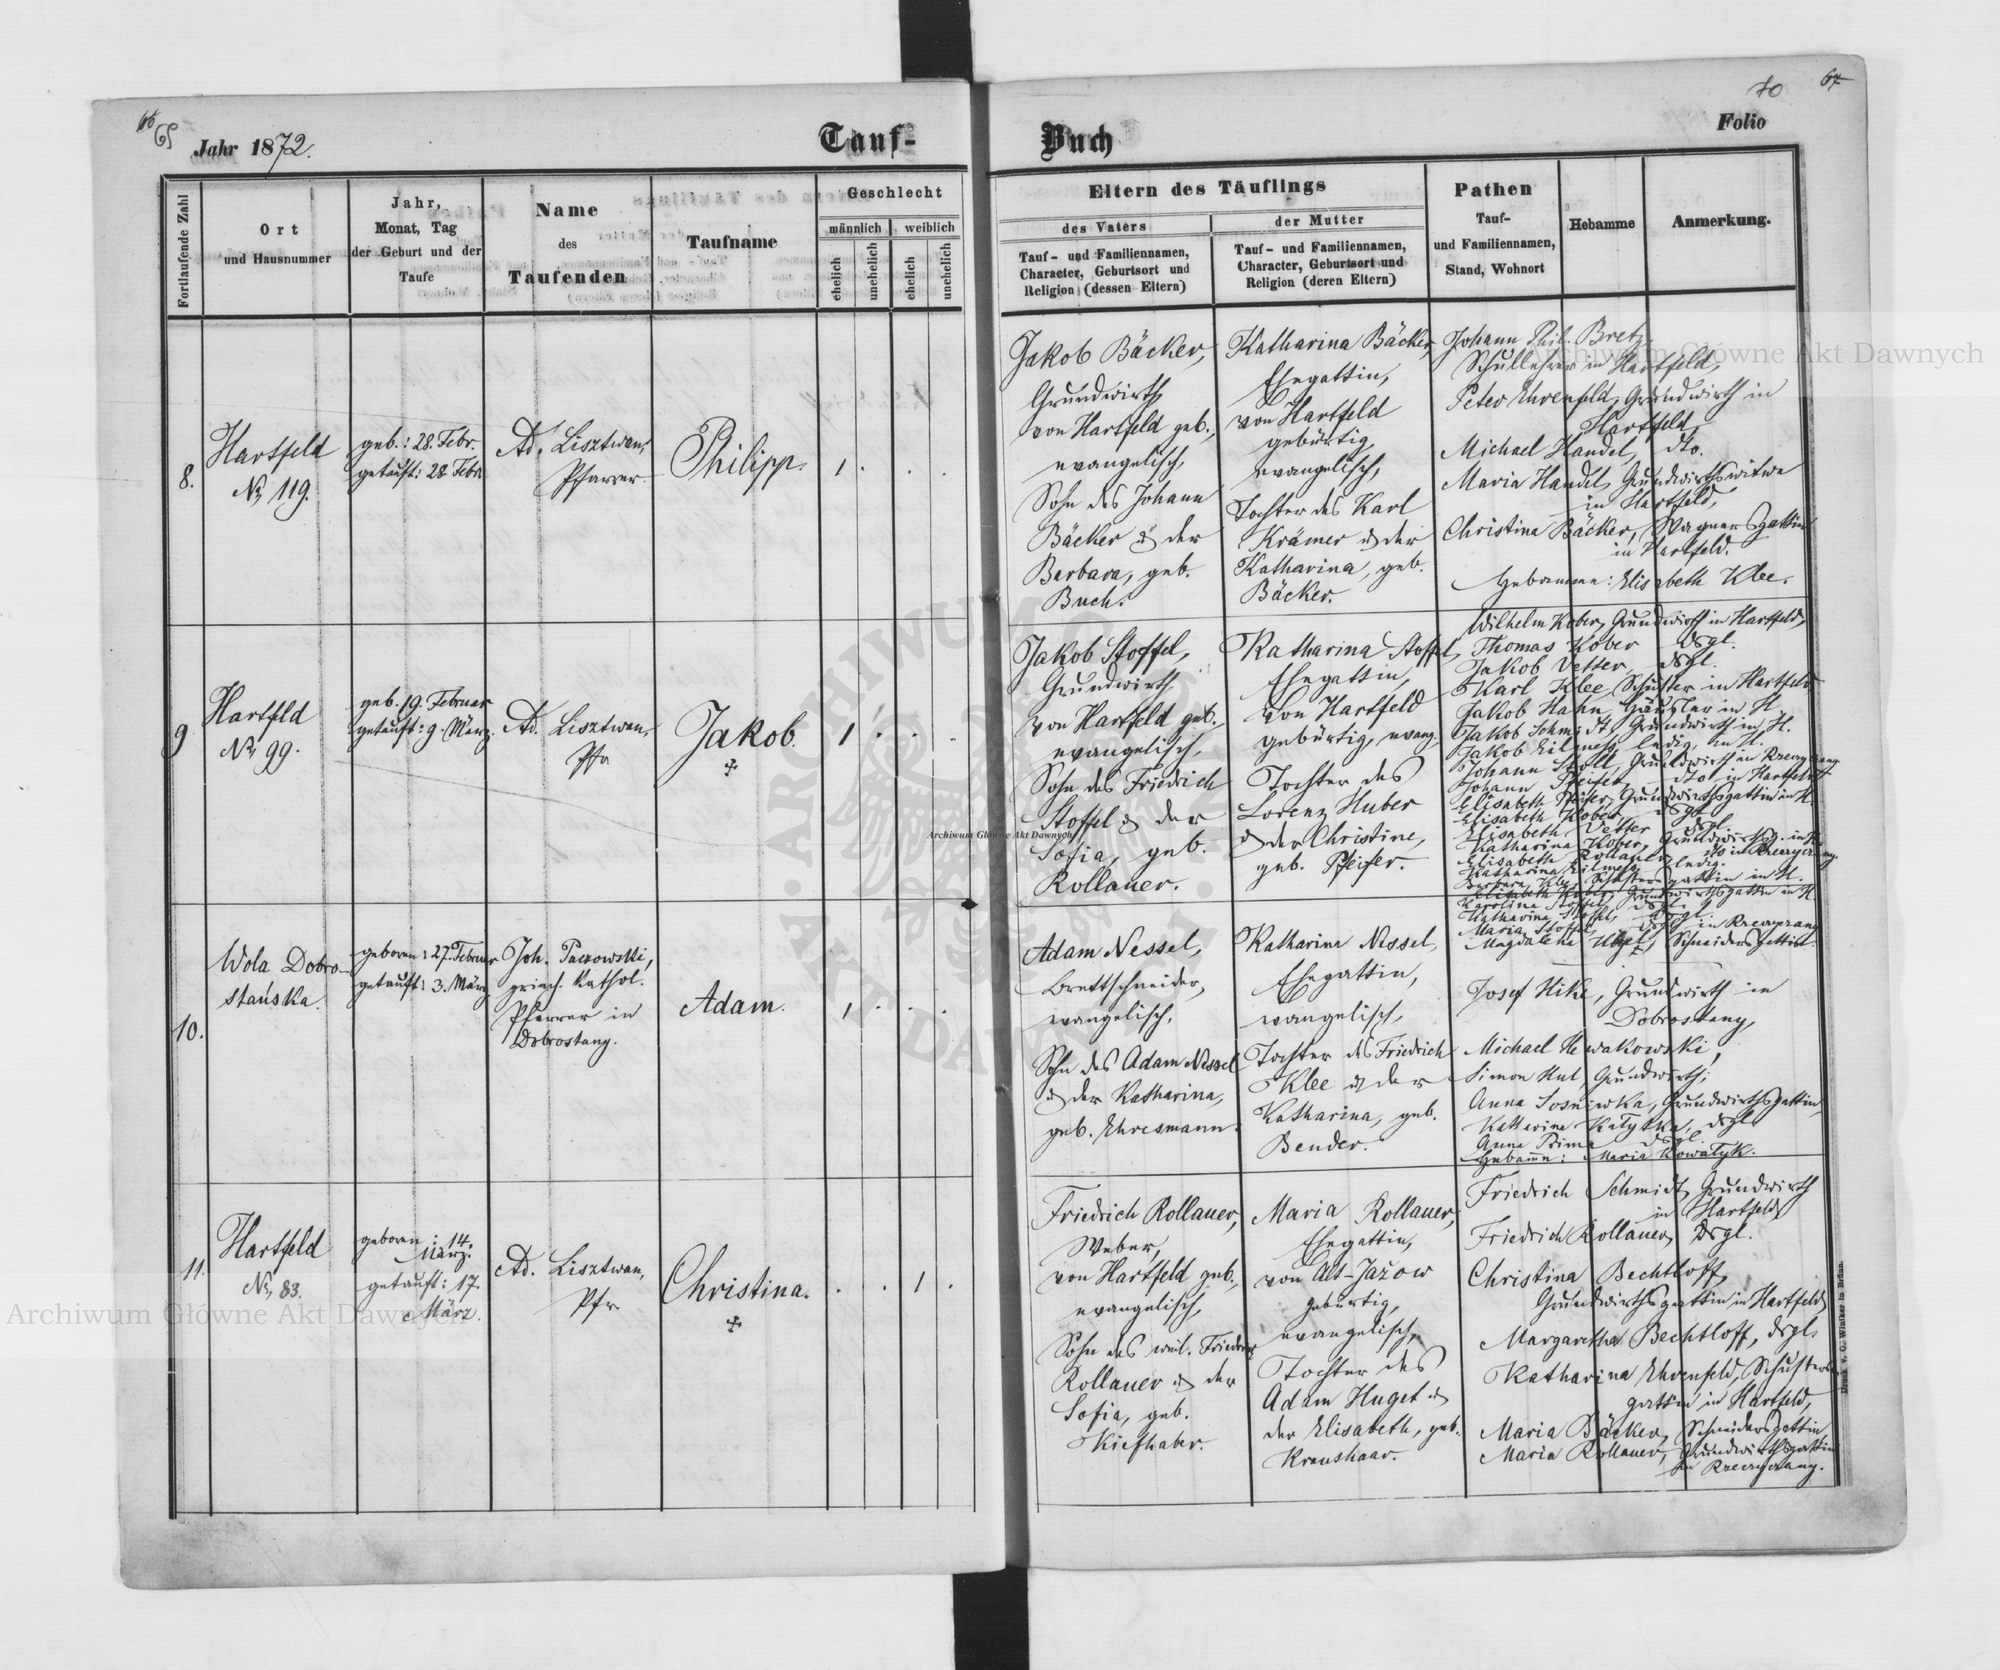 66
65
Jahr 1872.
Tauf-
Fortlaufende Zahl
Ort
und Hausnummer
Jahr,
Monat, Tag
der Geburt und der
Taufe
Name
des
Taufenden
Taufname
Geschlecht
männlich
weiblich
ehelich
unehelich
ehelich
unehelich
8.
Hartfeld
No 119.
geb.: 28. Febr.
getauft: 28. Febr.
Ad. Lisztwan,
Pfarrer.
Philipp.
1 . . .
9
Hartfeld
No 99.
geb. 19. Februar
getauft: 9. März.
Ad. Lisztwan,
Pfr
Jakob.
1 . . .
10.
Wola Dobro-
stańska.
geboren: 27. Februar
getauft: 3. März
Joh. Paczowski,
griech. kathol.
Pfarrer in
Dobrostany.
Adam.
1 . . .
11.
Hartfeld
No 83.
geboren: 14.
März.
getauft: 17.
März.
Ad. Lisztwan,
Pfr
Christina.
. . 1 .
67
70
Folio
Buch
Eltern des Täuflings
des Vaters
Tauf- und Familiennamen,
Character, Geburtsort und
Religion (dessen Eltern)
der Mutter
Tauf- und Familiennamen,
Character, Geburtsort und
Religion (deren Eltern)
Pathen
Tauf-
und Familiennamen,
Stand, Wohnort
Hebamme
Anmerkung.
Jakob Bäcker,
Grundwirth
von Hartfeld geb.,
evangelisch,
Sohn des Johann
Bäcker & der
Barbara, geb.
Buch.
Katharina Bäcker,
Ehegattin,
von Hartfeld
gebürtig,
evangelisch,
Tochter des Karl
Krämer & der
Katharina, geb.
Bäcker.
Johann Phil. Bretz,
Schullehrer in Hartfeld,
Peter Ehrenfeld, Grundwirth in
Hartfeld,
Michael Handel, dto.
Maria Handel, Grundwirthswitwe
in Hartfeld,
Christina Bäcker, Wagnersgattin
in Hartfeld.
Hebamme: Elisabeth Klee.
Jakob Stoffel,
Grundwirth
von Hartfeld geb.,
evangelisch,
Sohn des Friedrich
Stoffel & der
Sofia, geb.
Rollauer.
Katharina Stoffel,
Ehegattin,
von Hartfeld
gebürtig, evang.
Tochter des
Lorenz Huber
& der Christine,
geb. Pfeifer.
Wilhelm Kober, Grundwirth in Hartfeld,
Thomas Kober dsgl.
Jakob Vetter, dsgl.
Karl Klee, Schuster in Hartfeld
Jakob Hahn, Häusler in H.
Jakob Schmidt, Grundwirth in H.
Jakob Eilmess, ledig, in H.
Johann Stoll, Grundwirth in
Johann Pfeifer, dto in Hartfeld
Elisabeth Pfeifer, Grundwirthsgattin in H.
Elisabeth Kober, dsgl.
Elisabeth Vetter dsgl.
Katharina Kober, Grundwirthsg. in H.
Elisabeth Rollauer, dto in
Katharina Eilmess, ledig.
Barbara Klee, Schustersgattin in H.
Elisabeth Kober, Grundwirthsgattin in H.
Karolina Stoffel, dsgl.
Katharina Stoffel, dsgl.
Maria Stoffel, dsgl. in
Magdalena Huget, Schneidersgattin
Adam Nessel,
Brettschneider,
evangelisch,
Sohn des Adam Nessel
& der Katharina,
geb. Ehresmann.
Katharina Nessel,
Ehegattin,
evangelisch,
Tochter des Friedrich
Klee & der
Katharina, geb.
Bender.
Josef Hike, Grundwirth in
Dobrostany,
Michael
Simon Hut, Grundwirth;
Anna Sosniwka, Grundwirthsgattin,
Katharina dsgl.
Anna Prima dsgl.
Hebamme: Maria Kowalyk.
Friedrich Rollauer,
Weber,
von Hartfeld geb.,
evangelisch,
Sohn des weil. Friedrich
Rollauer & der
Sofia, geb.
Kiefhaber.
Maria Rollauer,
Ehegattin,
von Alt-Jažow
gebürtig,
evangelisch,
Tochter des
Adam Huget &
der Elisabeth, geb.
Kraushaar.
Friedrich Schmidt, Grundwirth
in Hartfeld,
Friedrich Rollauer, dsgl.
Christina Bechtloff,
Grundwirthsgattin in Hartfeld,
Margaretha Bechtloff, dsgl.
Katharina Ehrenfeld, Schusters-
gattin in Hartfeld,
Maria Bäcker, Schneidersgattin
Maria Rollauer, Grundwirthsgattin
in
Druck v. G. Winiker in Brünn.
Archiwum Główne Akt Dawnych
Archiwum Główne Akt Dawnych
Archiwum Główne Akt Dawnych